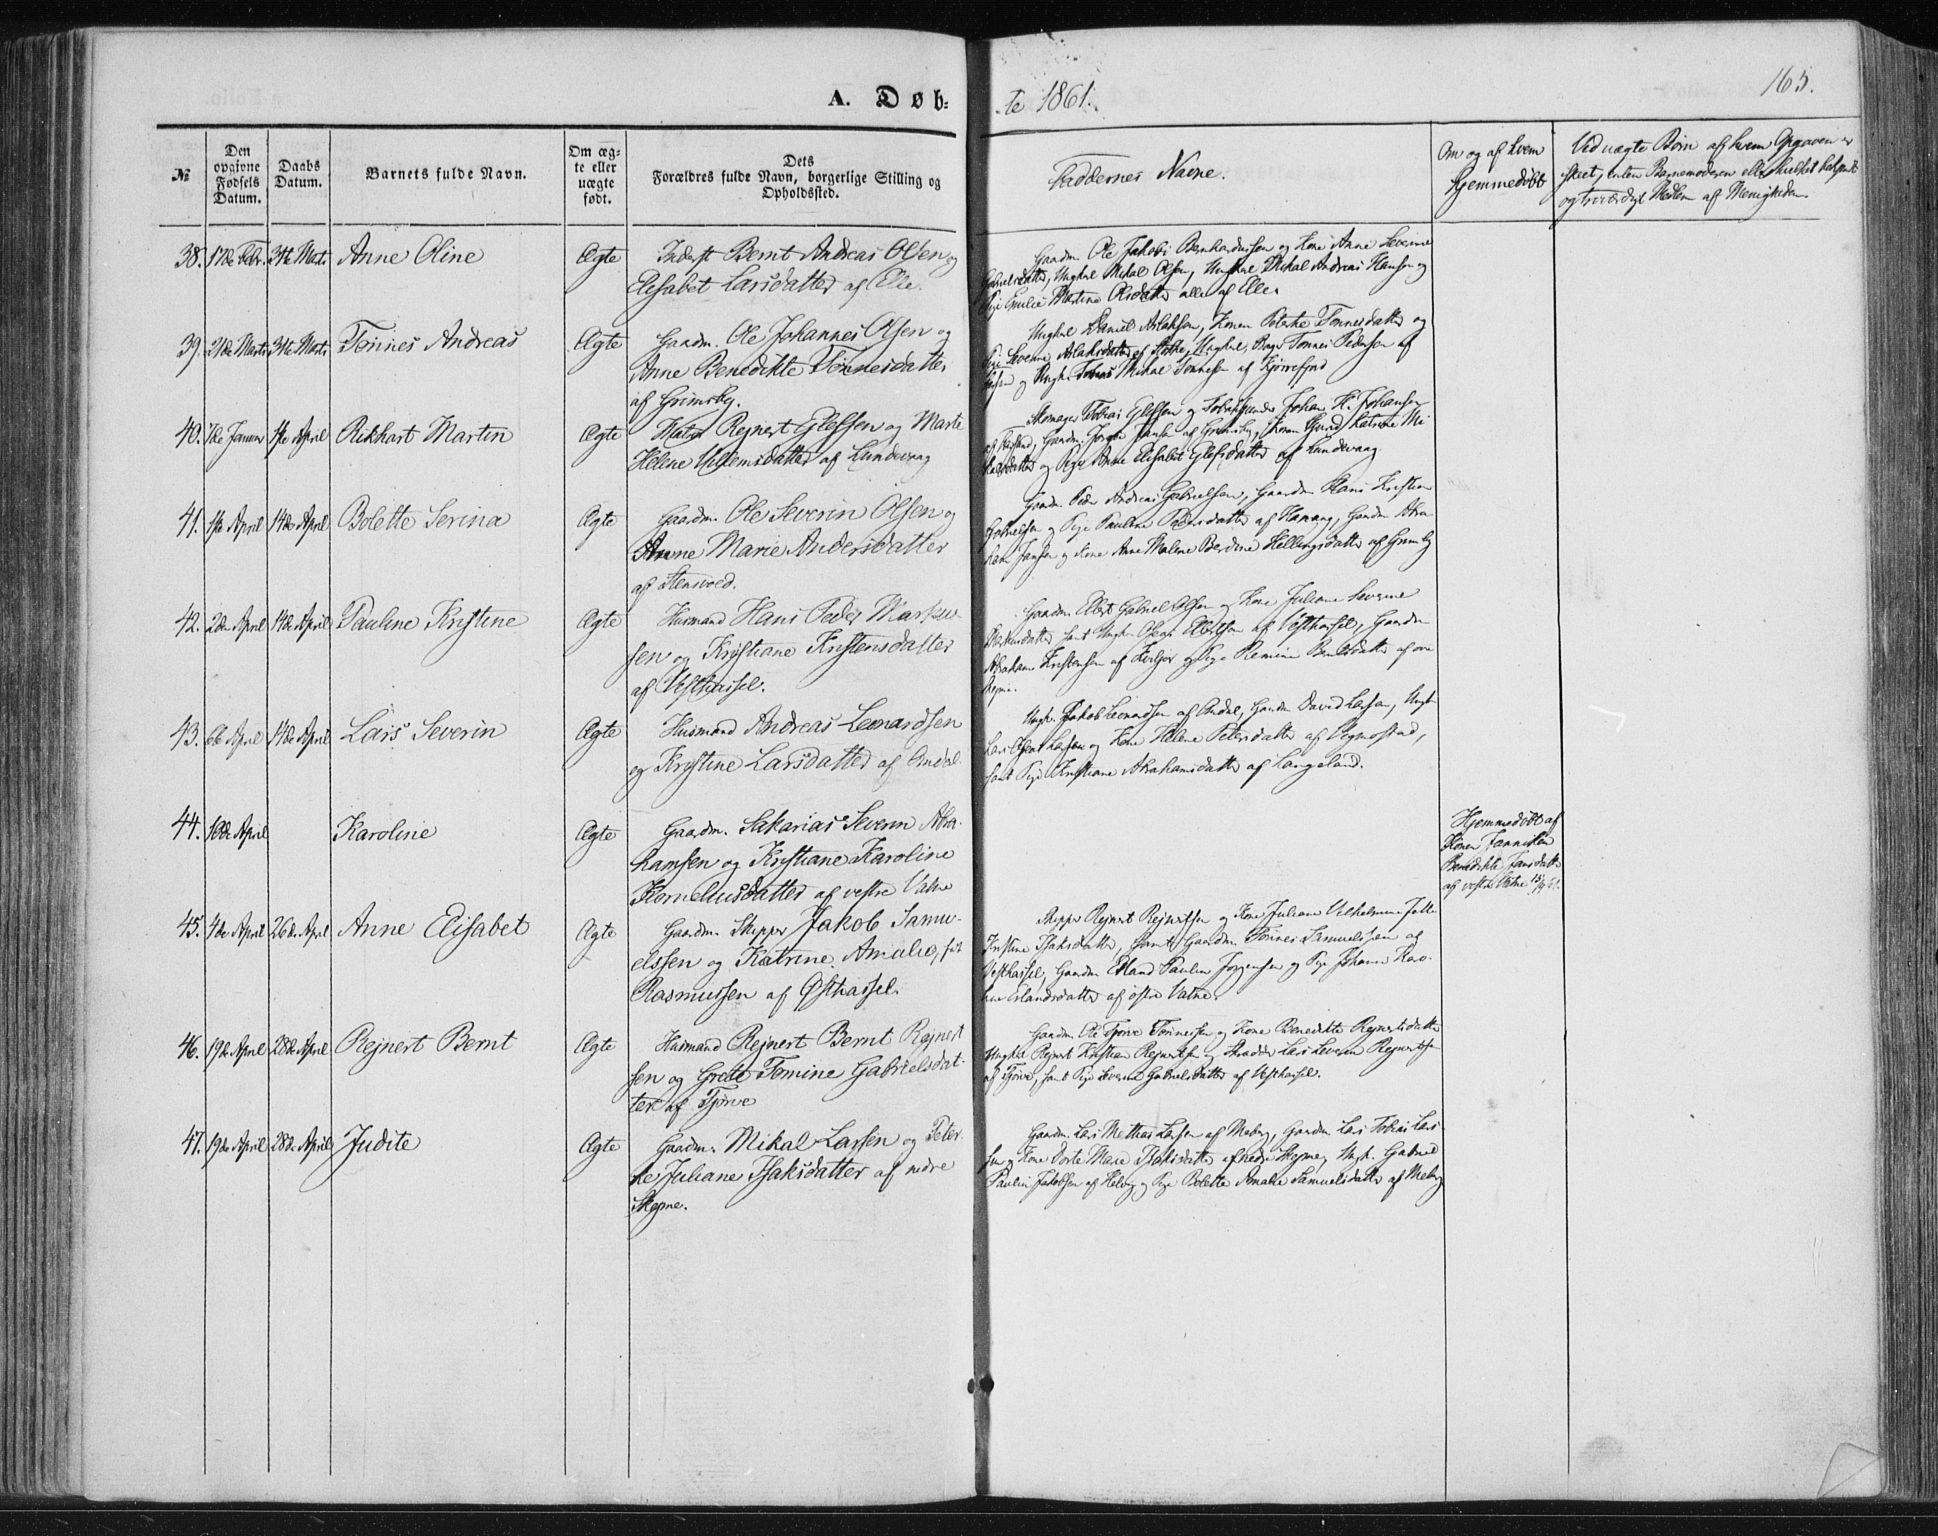 A. Døb-
te 1861.
165.
№
Den opgivne Fødsels Datum.
Daabs Datum.
Barnets fulde Navn.
Om ægte eller uægte født.
Dets Forældres fulde Navn, borgerlige Stilling og Opholdssted.
Faddernes Navne.
Om og af hvem hjemmedöbt
Ved uægte Börn af hvem Opgaven er
skeet, enten Barnemoderen eller
og troværdigt Medlem af Menigheden.
38. 17de Febr. 31te Marts Anne Oline Ægte Inderst Bernt Andreas Olsen og
Elisabet Larsdatter af Elle.
Gaardm. Ole Jakob Bernhardussen og Kone Anne Severine
Gabrielsdatter, Ungkarl Mikal Olsen, Ungkarl Mikal Andreas Hansen og
Pige Emilie Martine Olsdatter alle af Elle.
39. 21de Marts 31te Marts Tönnes Andreas Ægte Gaardm. Ole Johannes Olsen og
Anne Benedikte Tönnesdatter
af Grimsby.
Ungkarl Daniel Aslaksen, Konen Tönnesdatter og
Pige Severine Aslaksdatter af Ungkarl Tönnes Pedersen af
og Ungk. Tobias Mikal Tönnesen af Kjörrefjord
40. Januar 1ste April Rikhart Martin Ægte Matr. Rejnert Glefsen og Marte
Helene Villemsdatter af Lundevaag
Skomager Tobias Glefsen og Johan H. Johansen
af Farsund, Gaardm. Jansen af Grimsby, Konen Gurid Katrine Mi-
kalsdatter og Pige Anne Elisabet Glefsdatter af Lundevaag.
41. 1ste April 14de April Bolette Serina Ægte Gaardm. Ole Severin Olsen og
Anne Marie Andersdatter
af Stensvoed.
Gaardm. Peder Andreas Gabrielsen, Gaardm. Hans Kristian
Gabrielsen og Pige Pauline Pedersdatter af Hanang, Gaardm. Abra-
ham Jansen og Kone Anne Malene Berdine Hellingsdatter af Grimsby
42. 2den April 14de April Pauline Kristine Ægte Husmand Hans Peder Marku-
sen og Kristiane Kristensdatter
af Vesthassel.
Gaardm. Elert Gabriel Olsen og Kone Juliane Severine
Markusdatter samt Ungk. Elertsen af Vesthassel, Gaardm.
Abraham Kristensen af Kviljo og Pige Berntsdatter af
43. 6te April 14de April Lars Severin Ægte Husmand Andreas Leonardsen
og Kristine Larsdatter af Ondal.
Ungk. Jakob Leonardsen af Ondal, Gaardm. David Larsen, Ungk.
Lars Larsen og Kone Helene Petersdatter af Vegnestad,
samt Pige Kristiane Abrahamsdatter af Langeland.
44. 10de April Karoline Ægte Gaardm. Sakarias Severin Abra-
hamsen og Kristiane Karoline
Korneliusdatter af vestre Vatne
Hjemmedöbt af
Konen Janniken
Benedikte Jansdatter
af vestre Vatne
45. 4de April 26de April Anne Elisabet Ægte Gaardm. Skipper Jakob Samu-
elssen og Katrine Amalie, föt
Rasmussen af Östhassel.
Skipper Rejnert Rejnertsen og Kone Juliane Vilhelmine
Kristine Isaksdatter, samt Gaardm. Tönnes Samuelssen af
Vesthassel, Gaardm. Erland Paulin Jörgensen og Pige Johanne Karo-
line Erlandsdatter af östre Vatne.
46. 19de April 28de April Rejnert Bernt Ægte Husmand Rejnert Bernt Rejnert-
sen og Grete Tomine Gabrielsdat-
ter af Tjörve
Gaardm. Ole Tjörve Tönnessen og Kone Benedikte Rejnertsdatter
Ungkarl Rejnert Kristian Rejnertsen og Skrædder Lars Severin Rejnertsen
af Tjörve, samt Pige Severine Gabrielsdatter af Vesthassel.
47. 19de April 28de April Judite Ægte Gaardm. Mikal Larsen og Peter-
ke Juliane Isaksdatter af nedre
Skejme.
Gaardm. Lars Mathias Larsen af Meberg, Gaardm. Lars Tobias Lar-
sen og Kone Dorte Marie Isaksdatter af nedre Skejme, Ungk. Gabriel
Paulin Jakobsen af Helvig og Pige Bolette Amalie Samuelsdatter af Meberg